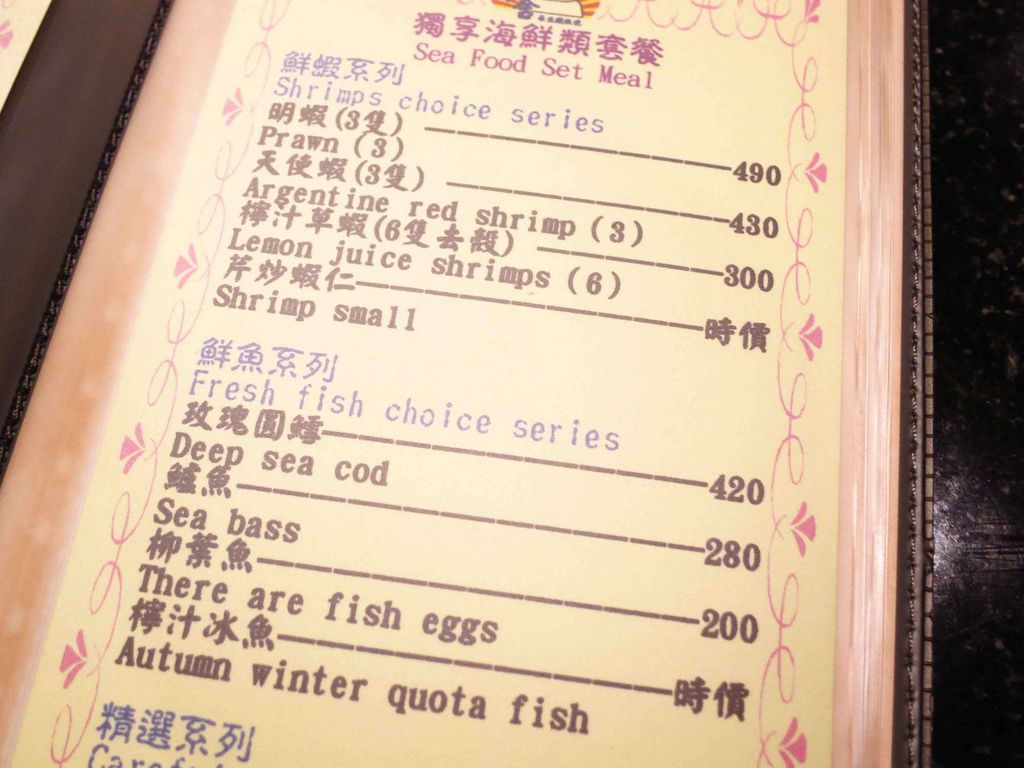 獨享海鮮類套餐
Sea Food Set Meal
鮮蝦系列
Shrimps choice series
明蝦(3隻) 490
Prawn (3)
天使蝦(3隻) 430
Argentine red shrimp (3)
檸汁草蝦(6隻去殼) 300
Lemon juice shrimps (6)
芹炒蝦仁 時價
Shrimp small
鮮魚系列
Fresh fish choice series
玫瑰圓鱈 420
Deep sea cod
鱸魚 280
Sea bass
柳葉魚 200
There are fish eggs
檸汁冰魚 時價
Autumn winter quota fish
精選系列